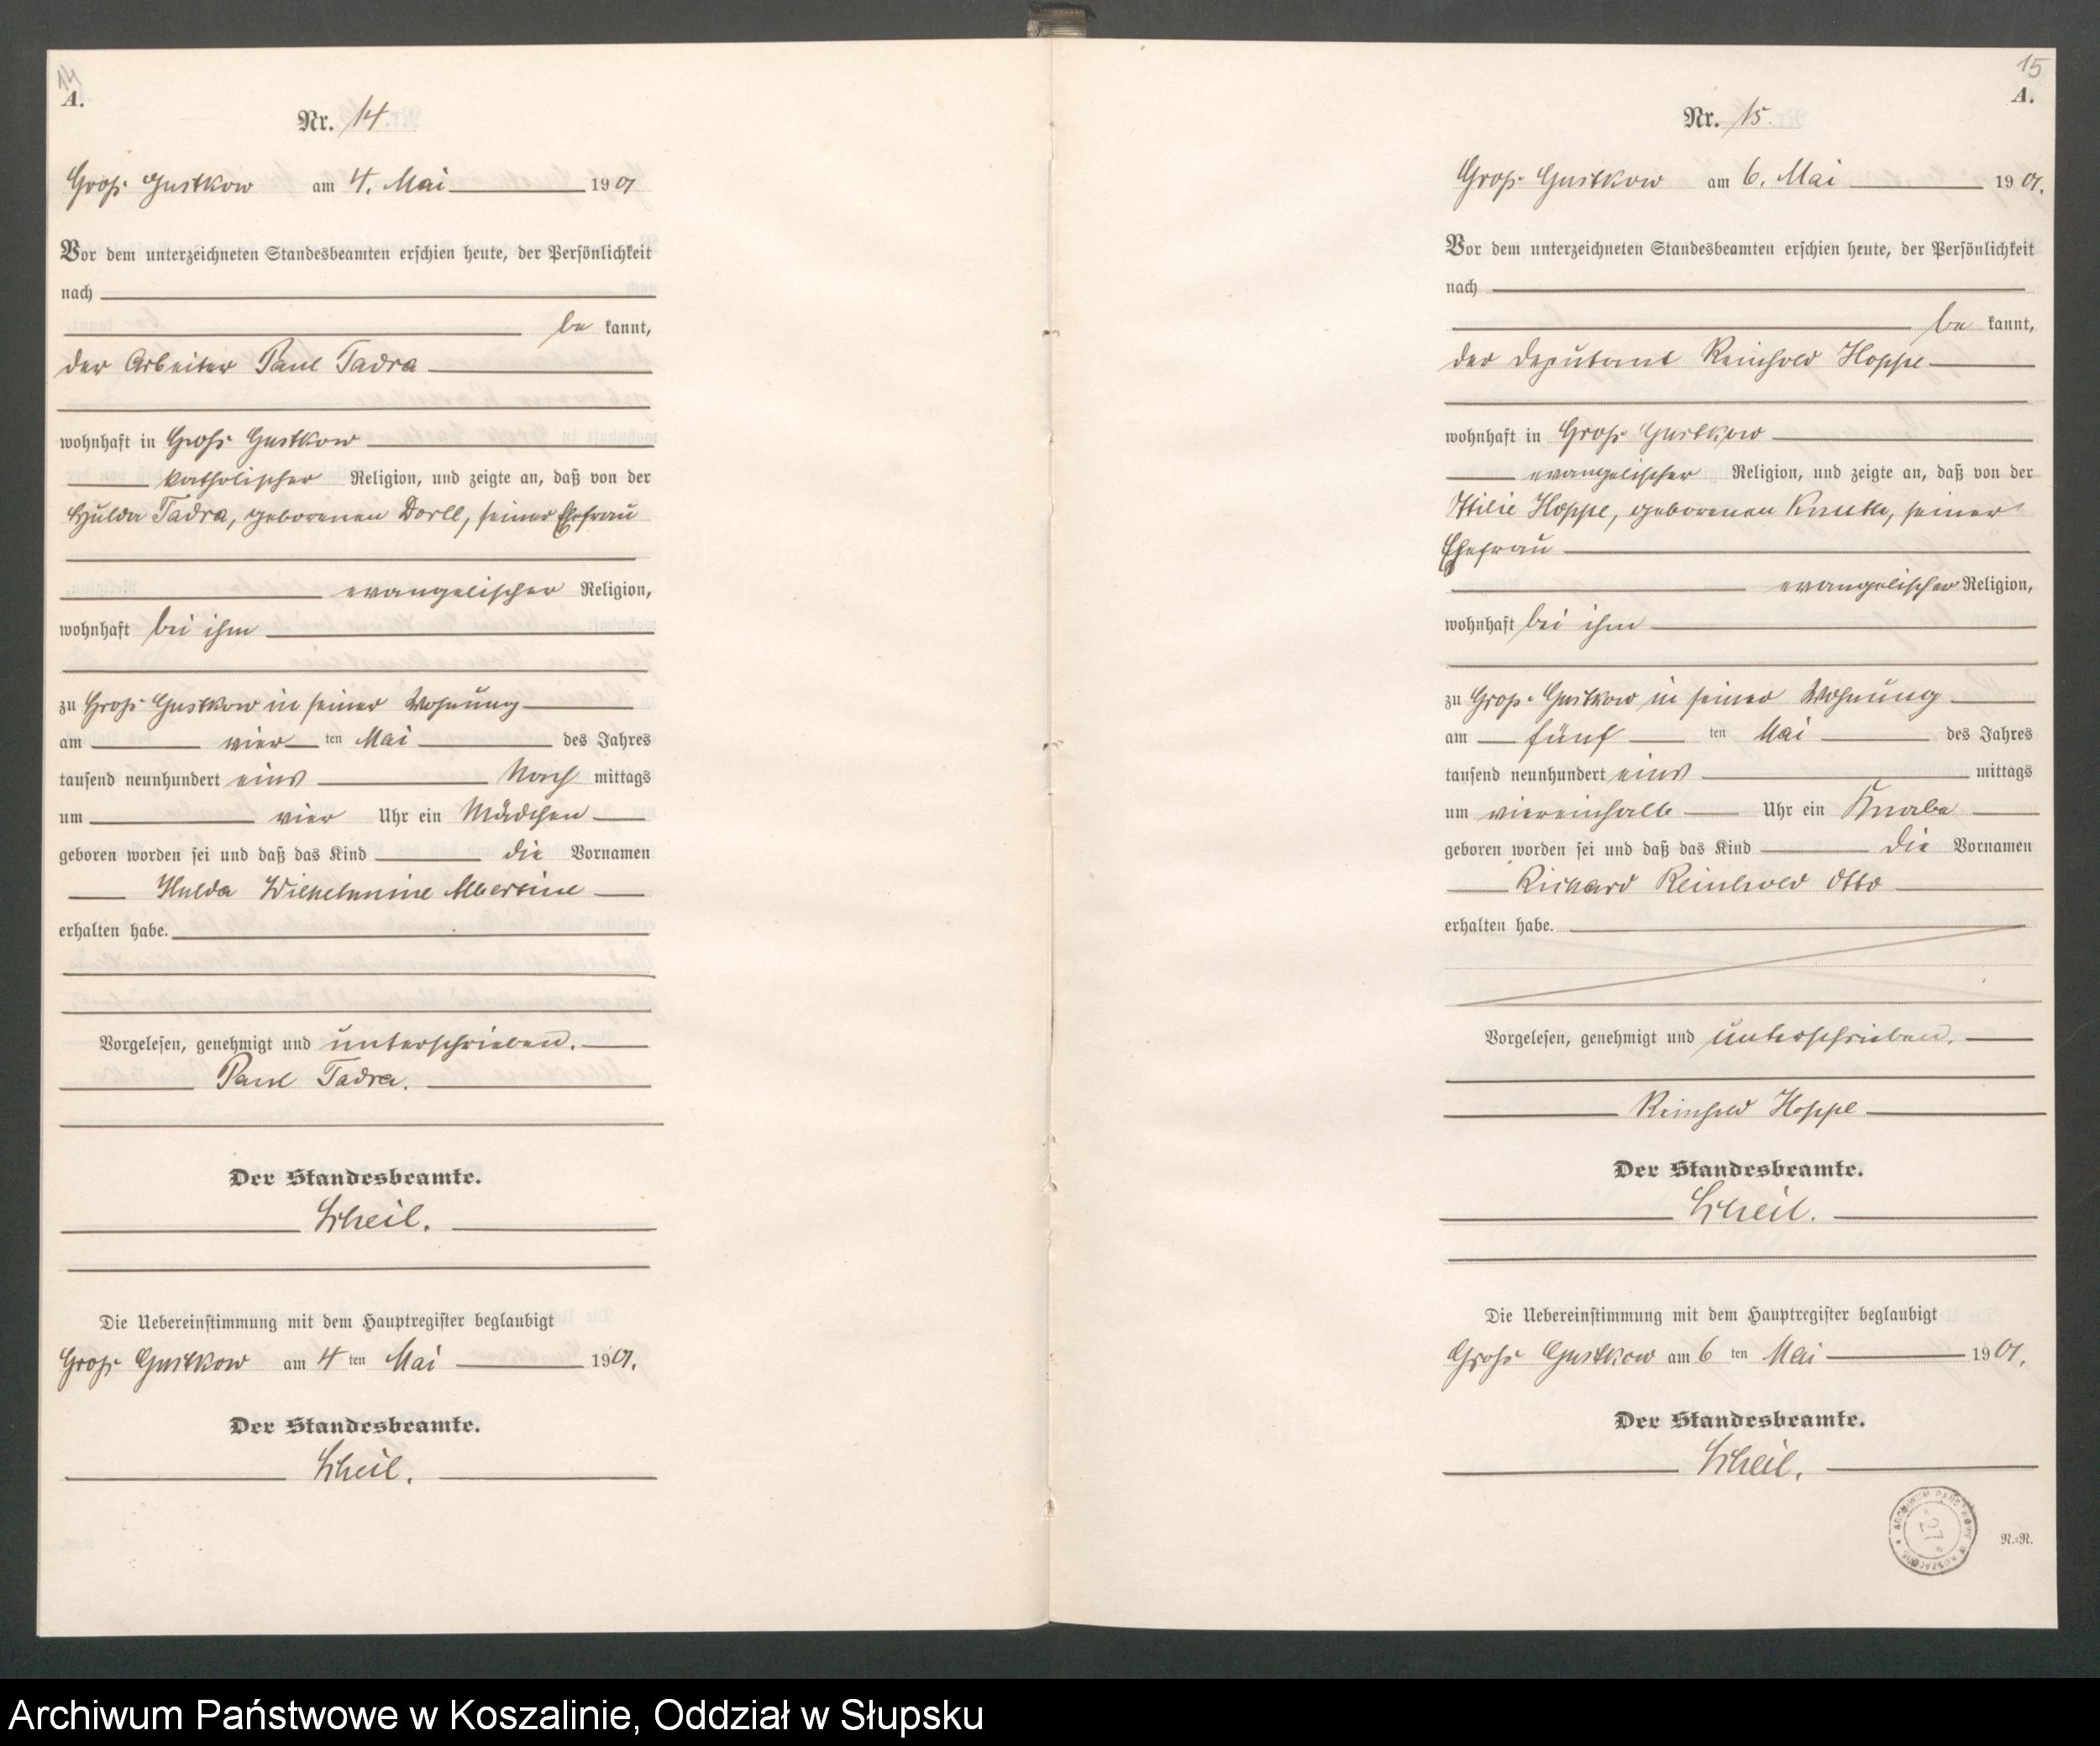 14
A.
Nr. 14
Groß Gustkow am 4. Mai 1901
Vor dem unterzeichneten Standesbeamten erschien heute, der Persönlichkeit
nach
be kannt,
der Arbeiter Paul Tadra
wohnhaft in Groß Gustkow
katholischer Religion, und zeigte an, daß von der
Hulda Tadra, geborenen Dorll, seiner Ehefrau
evangelischer Religion,
wohnhaft bei ihm
zu Groß Gustkow in seiner Wohnung
am vier ten Mai des Jahres
tausend neunhundert eins Nach mittags
um vier Uhr ein Mädchen
geboren worden sei und daß das Kind die Vornamen
Hulda Wilhelmine Albertine
erhalten habe.
Vorgelesen, genehmigt und unterschrieben.
Paul Tadra.
Der Standesbeamte.
Scheil.
Die Uebereinstimmung mit dem Hauptregister beglaubigt
Groß Gustkow am 4 ten Mai 1901.
Der Standesbeamte.
Scheil.
15
A.
Nr. 15.
Groß Gustkow am 6. Mai 1901.
Vor dem unterzeichneten Standesbeamten erschien heute, der Persönlichkeit
nach
be kannt,
der Deputant Reinhold Hoppe
wohnhaft in Groß Gustkow
evangelischer Religion, und zeigte an, daß von der
Ottilie Hoppe, geborenen seiner
Ehefrau
evangelischer Religion,
wohnhaft bei ihm
zu Groß Gustkow in seiner Wohnung
am fünf ten Mai des Jahres
tausend neunhundert eins mittags
um viereinhalb Uhr ein Knabe
geboren worden sei und daß das Kind die Vornamen
Richard Reinhold Otto
erhalten habe.
Vorgelesen, genehmigt und unterschrieben.
Reinhold Hoppe
Der Standesbeamte.
Scheil.
Die Uebereinstimmung mit dem Hauptregister beglaubigt
Groß Gustkow am 6 ten Mai 1901.
Der Standesbeamte.
Scheil.
ARCHIWUM PAŃSTWOWE W KOSZALINIE
27
N.=R.
Archiwum Państwowe w Koszalinie, Oddział w Słupsku